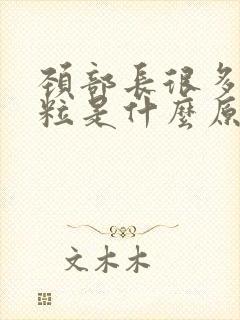 頸部長很多
粒是什麼原
文木木